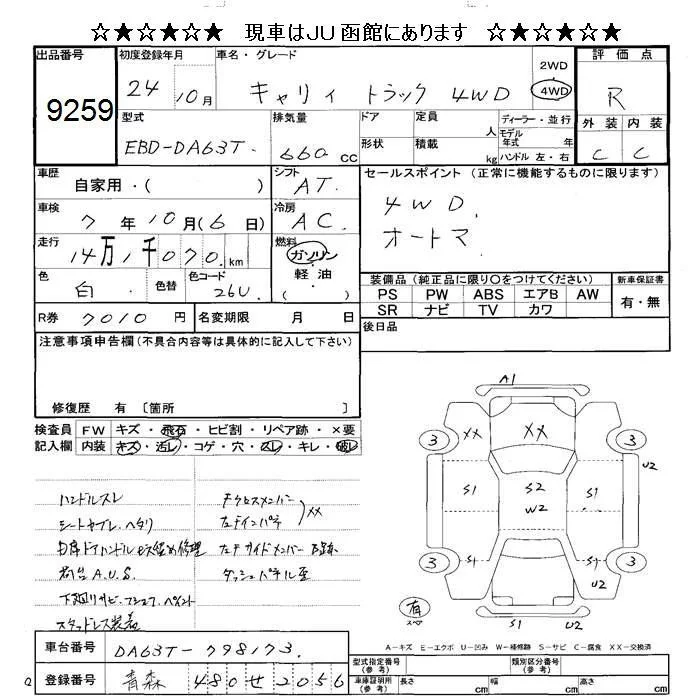 ☆★☆★☆★ 現車はJU函館にあります ☆★☆★☆★
出品番号 初度登録年月 車名・グレード 2WD 評価点
9259 24 10月 キャリィ トラック 4WD 4WD R
型式 排気量 ドア 定員 人 ディーラー・並行 外装 内装
EBD-DA63T 660 cc 形状 積載 kg モデル年式 年 ハンドル 左・右 C C
車歴 自家用・( ) シフト AT セールスポイント(正常に機能するものに限ります)
車検 7年10月(6日) 冷房 AC 4WD
走行 14万1千070km 燃料 ガソリン 軽油・( ) オートマ
色 白 色替 色コード 26U
装備品(純正品に限り○をつけてください) 新車保証書
PS PW ABS エアB AW 有・無
SR ナビ TV カワ
R券 7010円 名変期限 月 日 後日品
注意事項申告欄(不具合内容等は具体的に記入して下さい)
修復歴 有 〔箇所 〕
検査員 FW キズ・飛石・ヒビ割・リペア跡・×要
記入欄 内装 キズ・汚レ・コゲ・穴・スレ・キレ・破レ
ハンドルスレ
シートヤブレ、ヘタリ
荷台A.U.S.
下廻りサビ
スタッドレス装着
ダッシュパネル歪
XX
A1
XX XX
3 3
U2
S1 S2 S1
W2
S1 S1
3 3
U2
有 スペア
S1 U2
A-キズ E-エクボ U-凹み W-補修跡 S-サビ C-腐食 XX-交換済
車台番号 DA63T-798173
登録番号 青森 480せ2056
型式指定番号(参考) 類別区分番号(参考)
車庫証明用(参考) 長さ cm 幅 cm 高さ cm